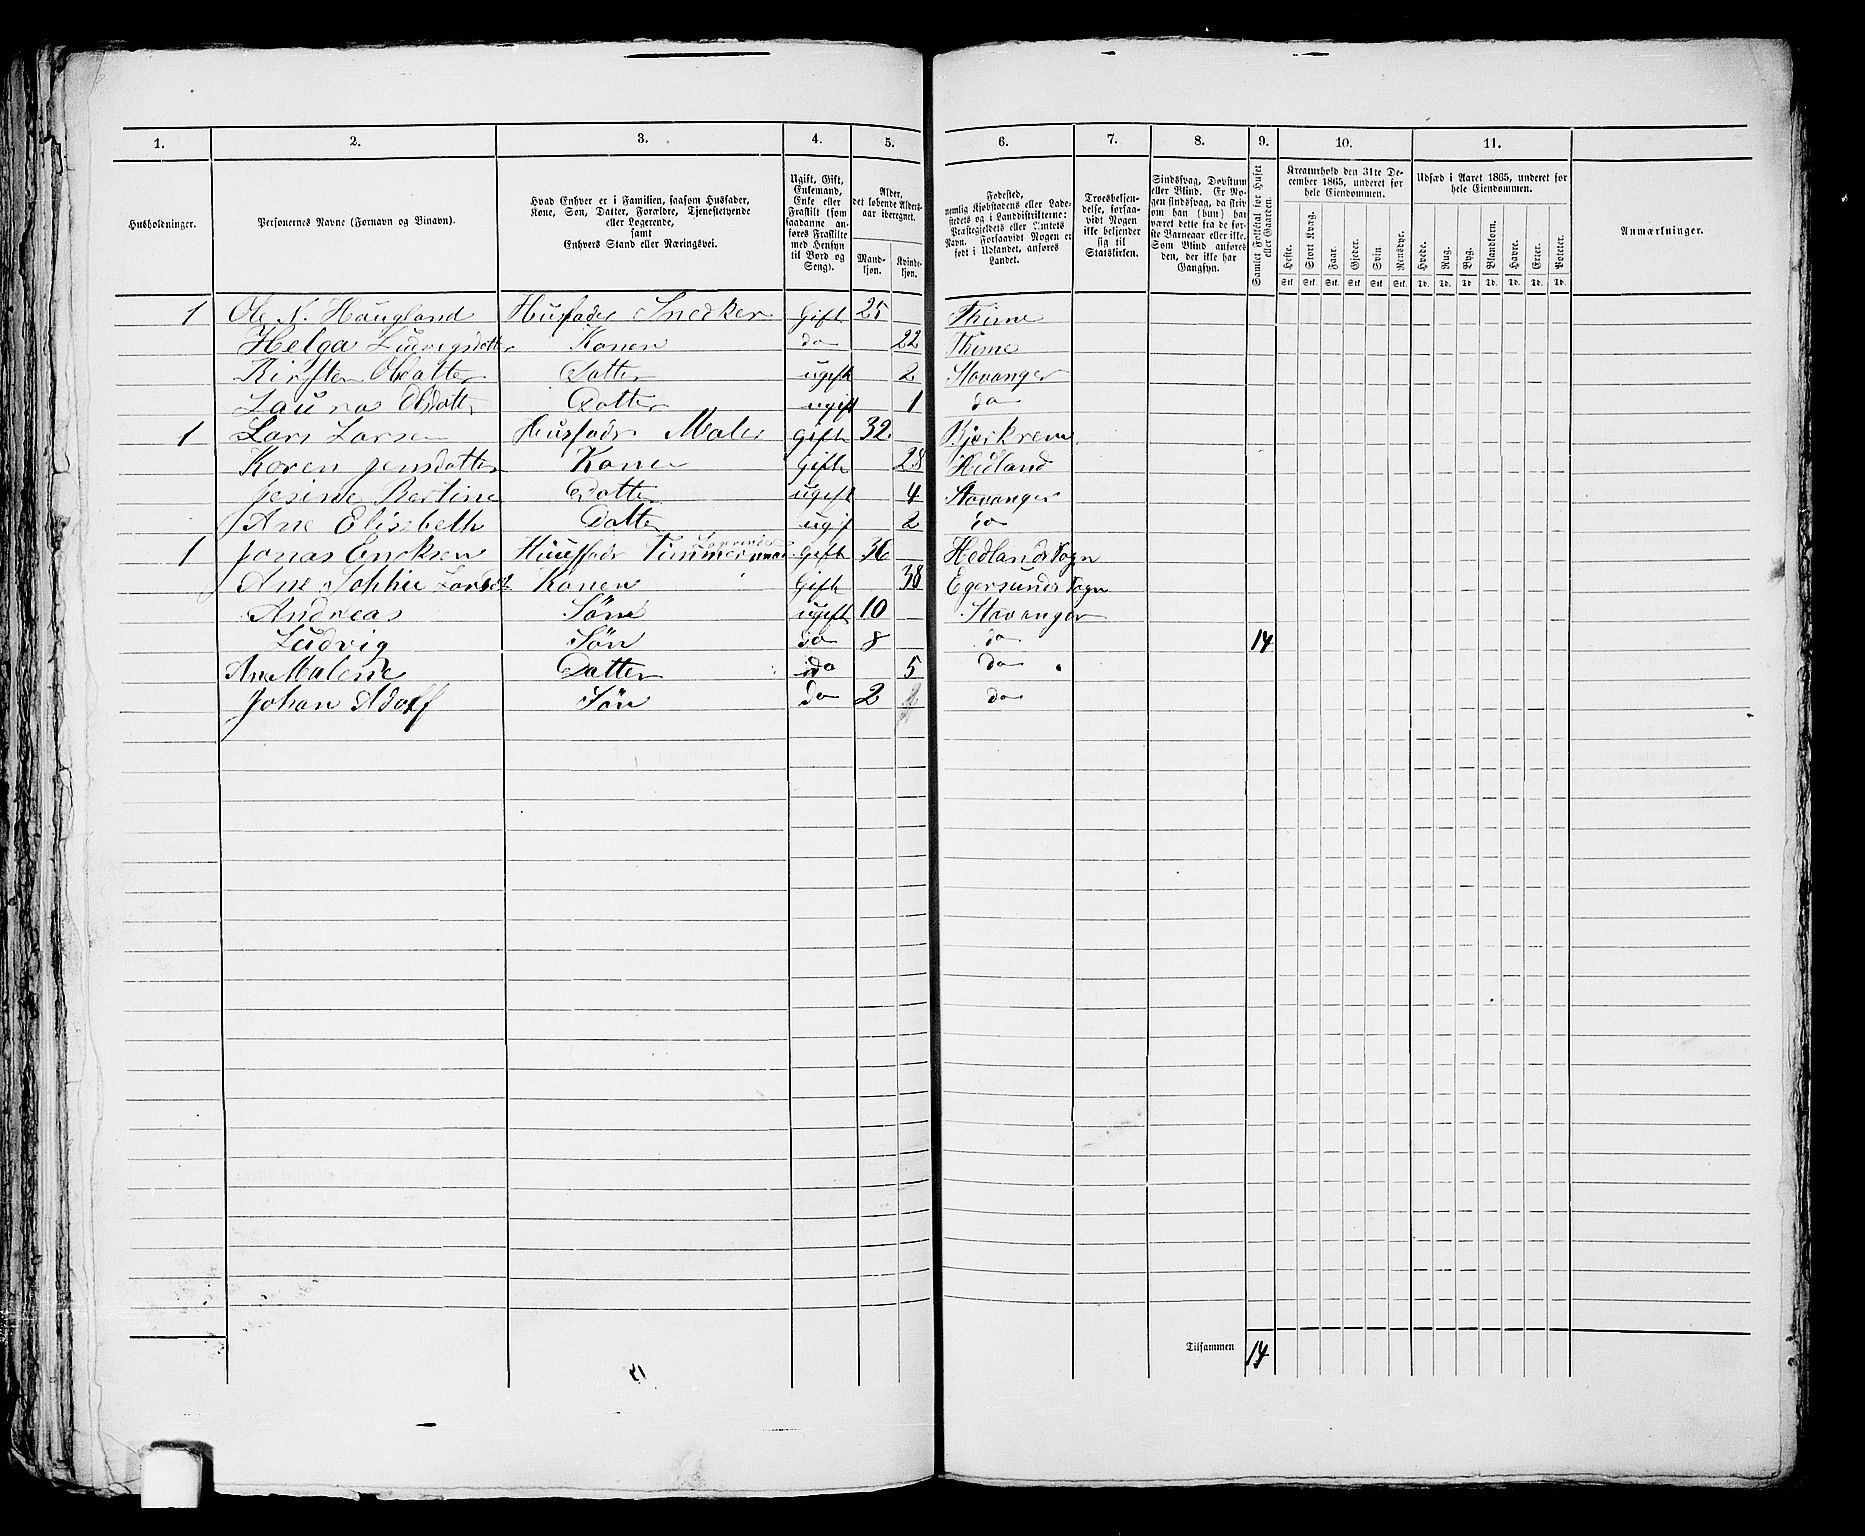 1. 2. 3. 4. 5. 6. 7. 8. 9. 10. 11.
Husholdninger.
Personernes Navne (Fornavn og Binavn).
Hvad Enhver er i Familien, saasom Husfader, Kone, Søn, Datter, Forældre, Tjenestetyende eller Logerende, samt Enhvers Stand eller Næringsvei.
Ugift, Gift, Enkemand, Enke eller Fraskilt (som saadanne anføres Fraskilte med Hensyn til Bord og Seng).
Alder, det løbende Aldersaar iberegnet.
Mandkjøn. Kvindekjøn.
Fødested, nemlig Kjøbstadens eller Ladestedets og i Landdistrikterne: Præstegjeldets eller Amtets Navn. Forsaavidt Nogen er født i Udlandet, anføres Landet.
Troesbekjendelse, forsaavidt Nogen ikke bekjender sig til Statskirken.
Sindssvag, Døvstum eller Blind. Er Nogen sindssvag, da skriv om han (hun) har været dette fra de første Barneaar eller ikke. Som Blind anføres den, der ikke har Gangsyn.
Samlet Folketal for Huset eller Gaarden.
Kreaturhold den 31te December 1865, underet for hele Eiendommen.
Heste. Stort Kvæg. Faar. Gjeder. Svin Rensdyr.
Stk. Stk. Stk. Stk. Stk. Stk.
Udsæd i Aaret 1865, underet for hele Eiendommen.
Hvede. Rug. Byg. Blandkorn. Havre. Erter. Poteter.
Td. Td. Td. Td. Td. Td. Td.
Anmærkninger.
1 Ole N. Haugland Husfader Snedker Gift 25 Thime
Helga Ludvigsdatter Konen do 22 Thime
Kirsten Olsdatter Datter ugift 2 Stavanger
Laura Olsdatter Datter ugift 1 do
1 Lars Larsen Husfader Maler Gift 32 Bjerkrem
Karen Jensdatter Kone Gift 28 Hedland
Jesine Bertine Datter ugift 4 Stavanger
Ane Elisebeth Datter ugif 2 do
1 Jonas Ericksen Huusfader Timmermand Gift 36 Hedlands Sogn
Ane Sophie Larsdt Konen Gift 38 Egersunds Sogn
Andreas Søn ugift 10 Stavanger
Ludvig Søn do 8 do 14
Ane Malene Datter do 5 do
Johan Adolf Søn do 2 do
Tilsammen 14